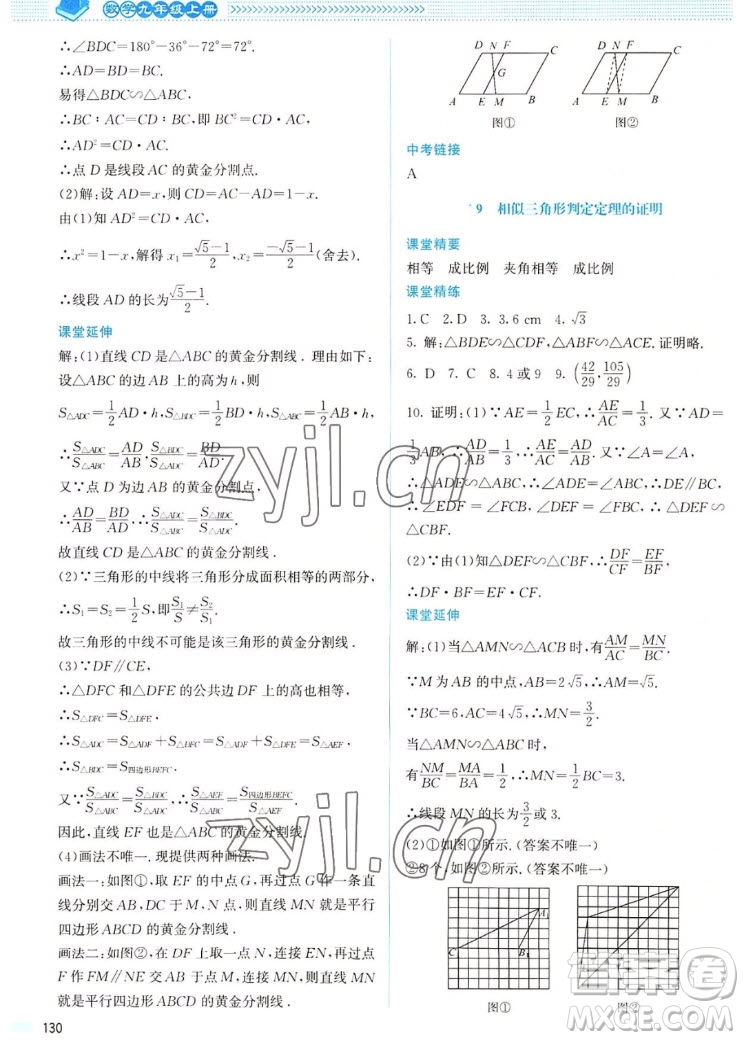 数学九年级上册
∴∠BDC=180°-36°-72°=72°.
∴AD=BD=BC.
易得△BDC∽△ABC.
∴BC∶AC=CD∶BC,即 BC²=CD·AC.
∴AD²=CD·AC.
∴点 D 是线段 AC 的黄金分割点.
(2)解:设 AD=x,则 CD=AC-AD=1-x.
由(1)知 AD²=CD·AC.
∴x²=1-x,解得 x₁=(√5-1)/2,x₂=(-√5-1)/2(舍去).
∴线段 AD 的长为(√5-1)/2.
课堂延伸
解:(1)直线 CD 是△ABC 的黄金分割线.理由如下:
设△ABC 的边 AB 上的高为 h,则
S△ADC=1/2 AD·h,S△BDC=1/2 BD·h,S△ABC=1/2 AB·h,
∴S△ADC/S△ABC=AD/AB,S△BDC/S△ADC=BD/AD.
又∵点 D 为边 AB 的黄金分割点,
∴AD/AB=BD/AD.∴S△ADC/S△ABC=S△BDC/S△ADC.
故直线 CD 是△ABC 的黄金分割线.
(2)∵三角形的中线将三角形分成面积相等的两部分,
∴S₁=S₂=1/2 S,即 S₁/S≠S₂/S₁.
故三角形的中线不可能是该三角形的黄金分割线.
(3)∵DF∥CE,
∴△DFC 和△DFE 的公共边 DF 上的高也相等,
∴S△DFC=S△DFE,
∴S△ADC=S△ADF+S△DFC=S△ADF+S△DFE=S△AEF,
∴S△BDC=S四边形BEFC.
又∵S△ADC/S△ABC=S△BDC/S△ADC,∴S△AEF/S△ABC=S四边形BEFC/S△AEF.
因此,直线 EF 也是△ABC 的黄金分割线.
(4)画法不唯一.现提供两种画法:
画法一:如图①,取 EF 的中点 G,再过点 G 作一条直
线分别交 AB,DC 于点 M,N,则直线 MN 就是平行
四边形 ABCD 的黄金分割线.
画法二:如图②,在 DF 上取一点 N,连接 EN,再过点
F 作 FM∥NE 交 AB 于点 M,连接 MN,则直线 MN
就是平行四边形 ABCD 的黄金分割线.
130
D N F C
G
A E M B
图①
D N F C
A E M B
图②
中考链接
A
9 相似三角形判定定理的证明
课堂精要
相等 成比例 夹角相等 成比例
课堂精练
1. C 2. D 3. 3.6 cm 4. √3
5. 解:△BDE∽△CDF,△ABF∽△ACE.证明略.
6. D 7. C 8. 4或9 9. (42/29,105/29)
10. 证明:(1)∵AE=1/2 EC,∴AE/AC=1/3.又∵AD=
1/3 AB,∴AD/AB=1/3,∴AD/AB=AE/AC.又∵∠A=∠A,
∴△ADE∽△ABC,∴∠ADE=∠ABC,∴DE∥BC,
∴∠EDF=∠FCB,∠DEF=∠FBC,∴△DEF∽
△CBF.
(2)∵由(1)知△DEF∽△CBF,∴DF/CF=EF/BF,
∴DF·BF=EF·CF.
课堂延伸
解:(1)当△AMN∽△ACB 时,有AM/AC=MN/BC.
∵M 为 AB 的中点,AB=2√5,∴AM=√5.
∵BC=6,AC=4√5,∴MN=3/2.当△AMN∽△ABC 时,
有NM/BC=MA/BA=1/2,∴MN=3.
∴线段 MN 的长为3/2或3.
(2)①如图①所示.(答案不唯一)
②8个,如图②所示.(答案不唯一)
A₁
C B₁
图①
图②
zyjl.cn
zyjl.cn
答案卷
MXQE.COM